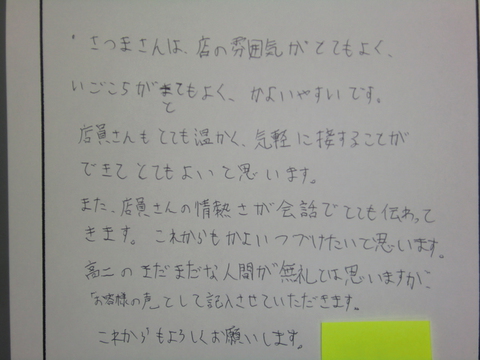 ・さつまさんは、店の雰囲気がとてもよく、
いごこちがとてもよく、かよいやすいです。
店員さんもとても温かく、気軽に接することが
できてとてもよいと思います。
また、店員さんの情熱さが会話でとても伝わって
きます。これからもかよいつづけたいで思います。
高二のまだまだな人間が無礼とは思いますが、
「お客様の声」として記入させていただきます。
これからもよろしくお願いします。